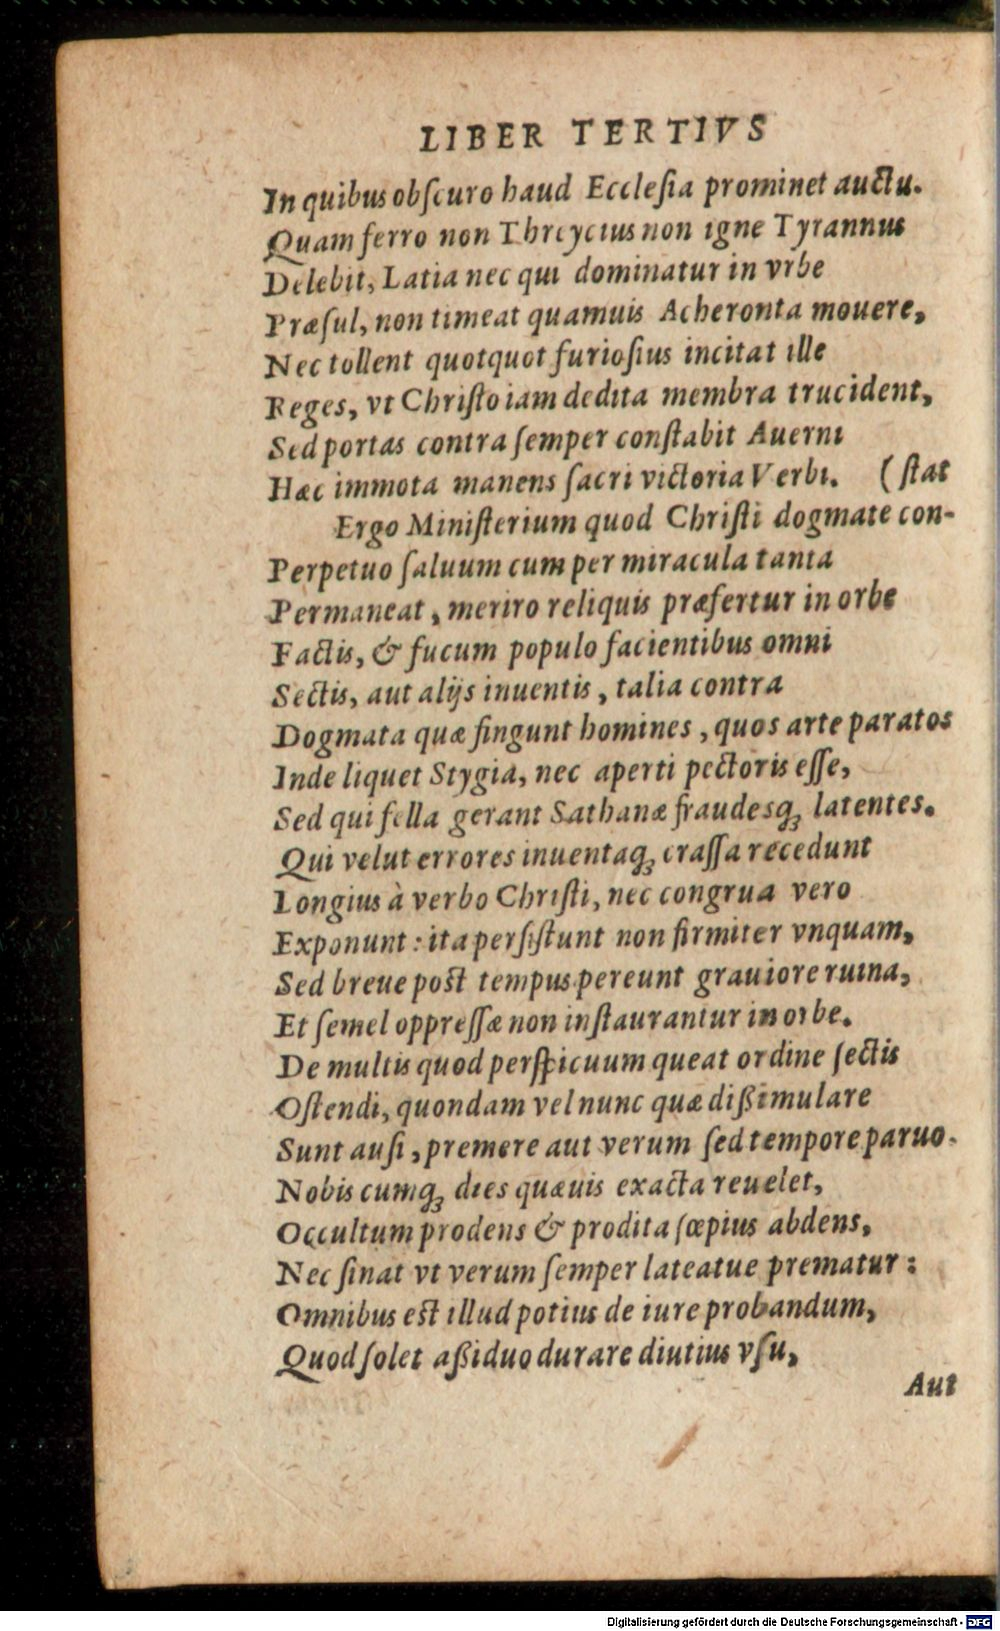 LIBER TERTIVS
In quibus obſcuro haud Eccleſia prominet auctu.
Quam ferro non Threycius non igne Tyrannus
Delebit, Latia nec qui dominatur in vrbe
Præſul, non timeat quamuis Acheronta mouere,
Nec tollent quotquot furioſius incitat ille
Reges, vt Chriſto iam dedita membra trucident,
Sed portas contra ſemper conſtabit Auerni
Hæc immota manens ſacri victoria Verbi. (ſtat
Ergo Miniſterium quod Chriſti dogmate con-
Perpetuo ſaluum cum per miracula tanta
Permaneat, meriro reliquis præfertur in orbe
Factis, & fucum populo facientibus omni
Sectis, aut alijs inuentis, talia contra
Dogmata quæ fingunt homines, quos arte paratos
Inde liquet Stygia, nec aperti pectoris eſſe,
Sed qui fella gerant Sathanæ fraudesqꝫ latentes.
Qui velut errores inuentaqꝫ craſſa recedunt
Longius à verbo Chriſti, nec congrua vero
Exponunt: ita perſiſtunt non firmiter vnquam,
Sed breue poſt tempus pereunt grauiore ruina,
Et ſemel oppreſſæ non inſtaurantur in orbe.
De multis quod perſpicuum queat ordine ſectis
Oſtendi, quondam vel nunc quæ dißimulare
Sunt auſi, premere aut verum ſed tempore paruo.
Nobis cumqꝫ dies quæuis exacta reuelet,
Occultum prodens & prodita ſœpius abdens,
Nec ſinat vt verum ſemper lateatue prematur:
Omnibus eſt illud potius de iure probandum,
Quod ſolet aßiduo durare diutius vſu,
Aut
Digitalisierung gefördert durch die Deutsche Forschungsgemeinschaft - DFG